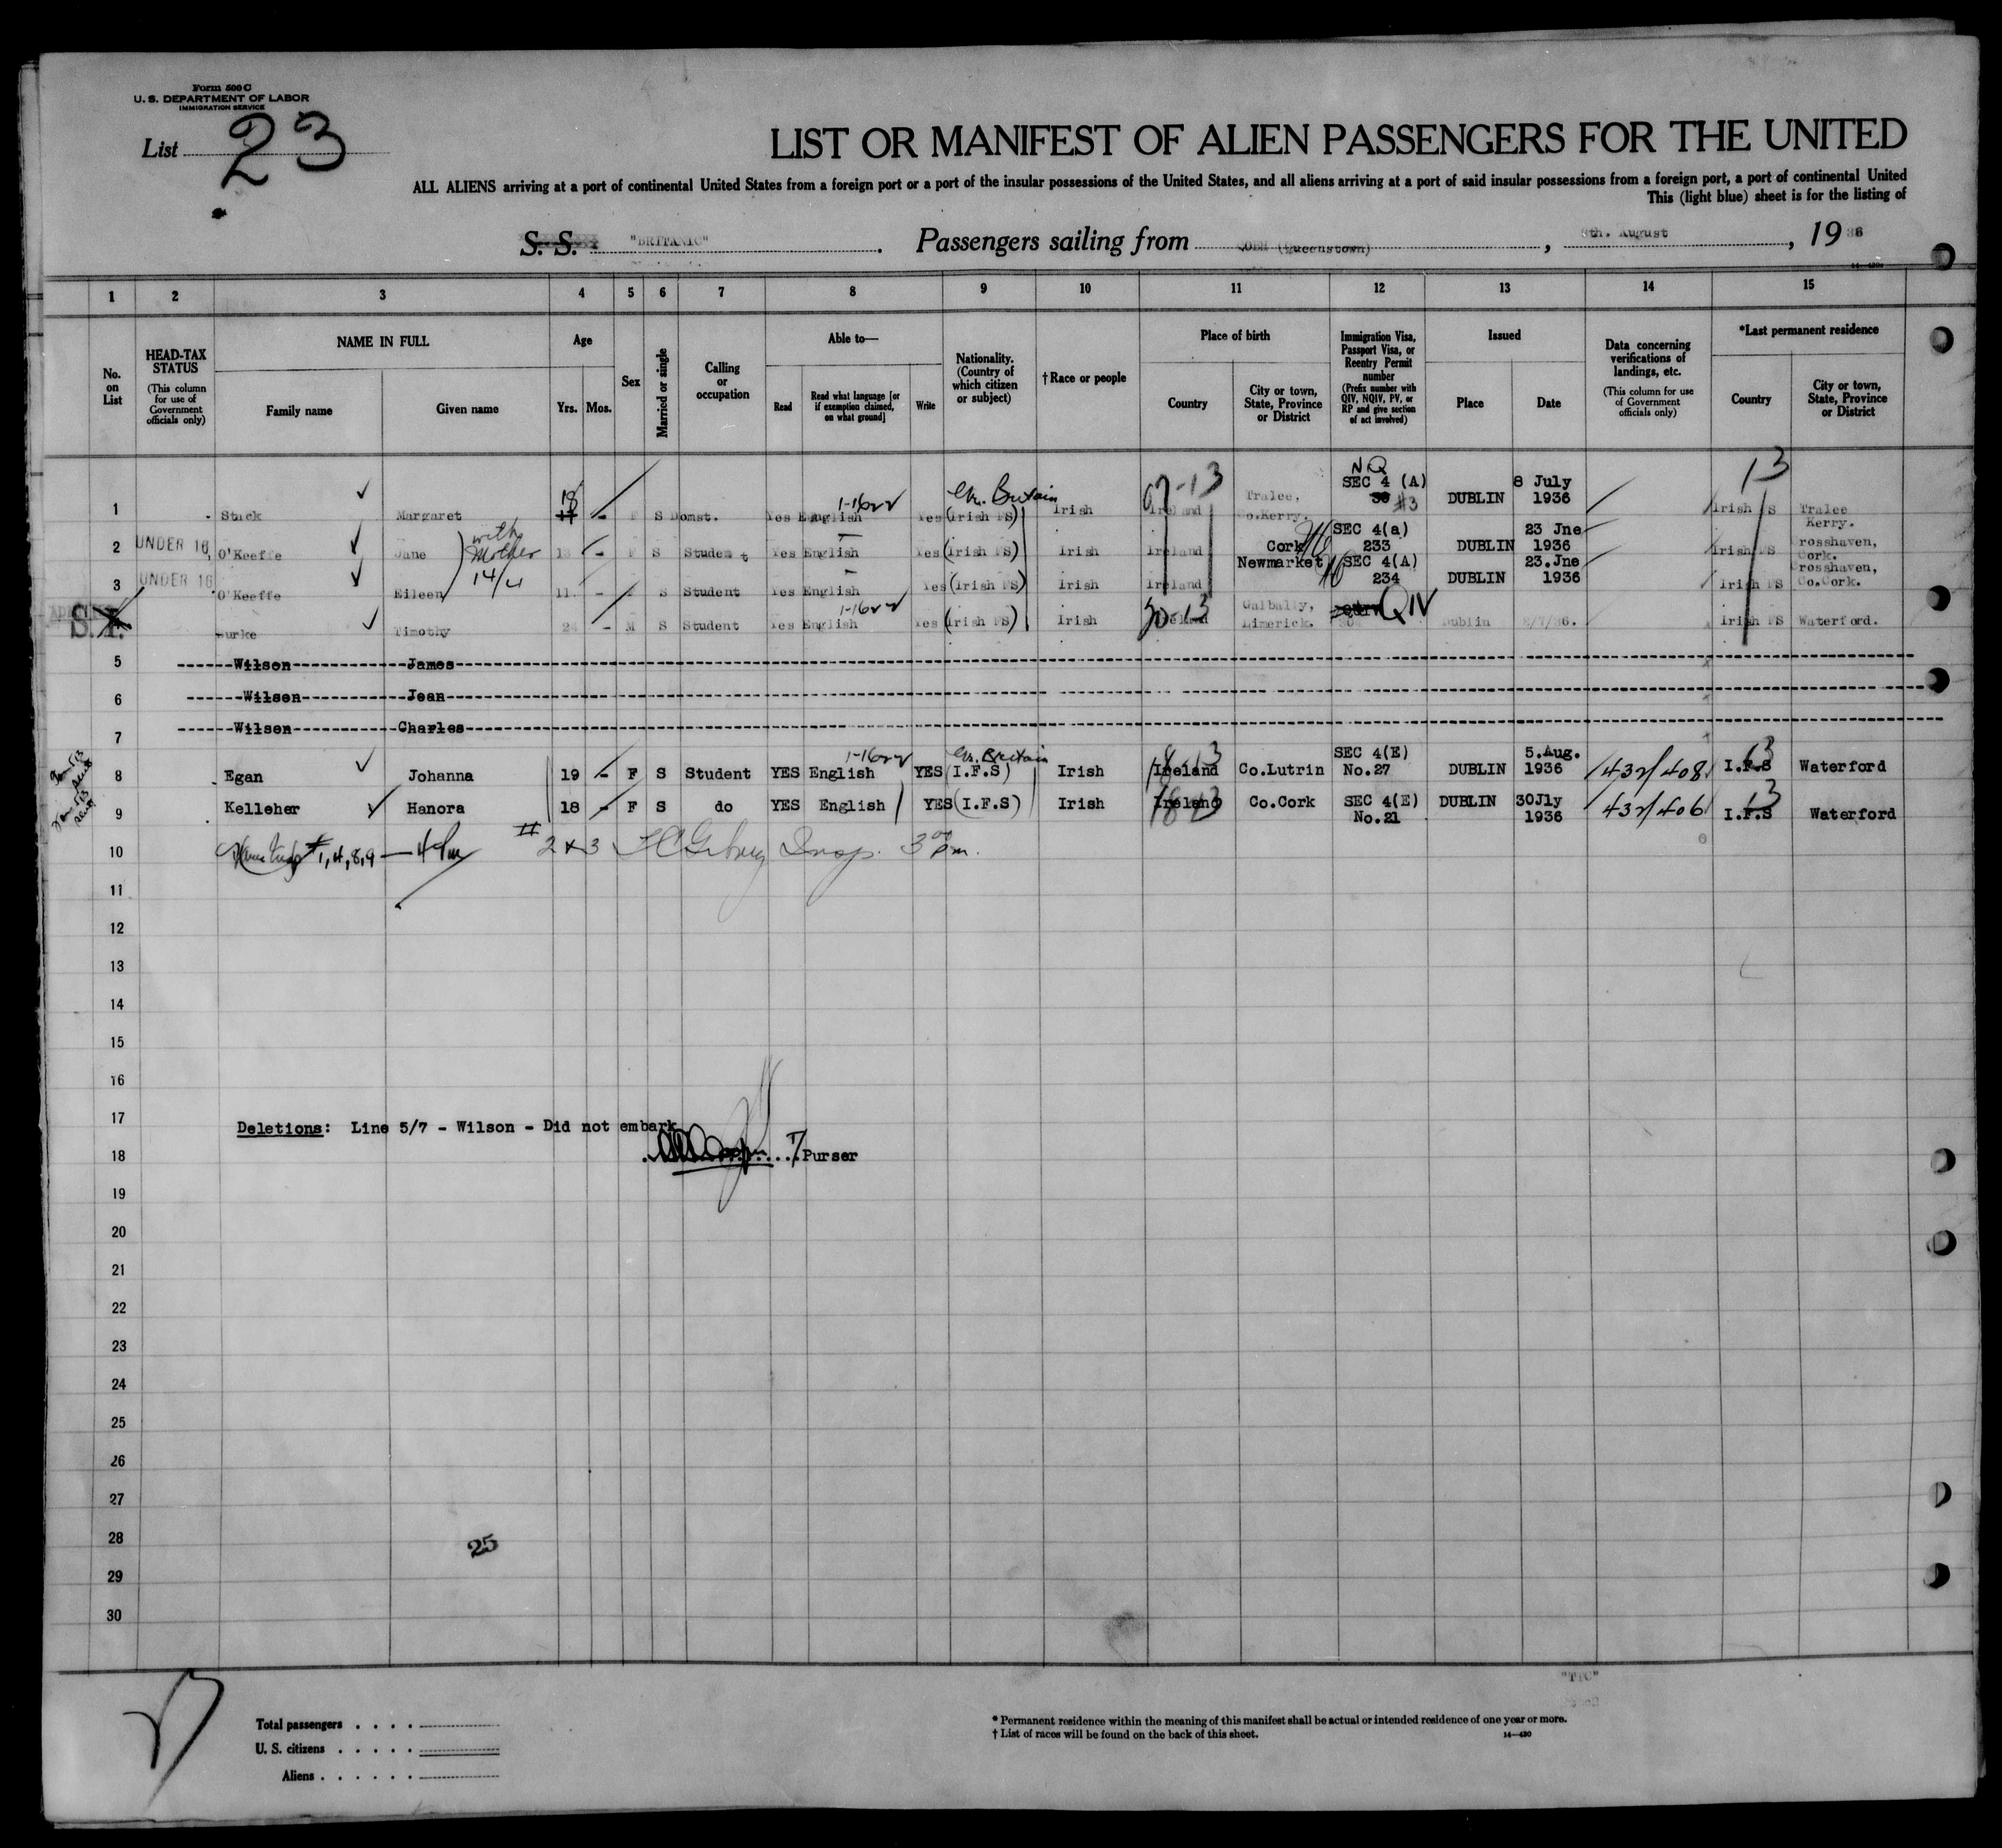 Form 500 C
U. S. DEPARTMENT OF LABOR
IMMIGRATION SERVICE
List 23
LIST OR MANIFEST OF ALIEN PASSENGERS FOR THE UNITED
ALL ALIENS arriving at a port of continental United States from a foreign port or a port of the insular possessions of the United States, and all aliens arriving at a port of said insular possessions from a foreign port, a port of continental United
This (light blue) sheet is for the listing of
S. S. "BRITANIC" . Passengers sailing from COBH (Queenstown) , 8th. August , 19 36
1 2 3 4 5 6 7 8 9 10 11 12 13 14 15
No. on List
HEAD-TAX STATUS (This column for use of Government officials only)
NAME IN FULL
Family name Given name
Age
Yrs. Mos.
Sex
Married or single
Calling or occupation
Able to—
Read Read what language [or if exemption claimed, on what ground] Write
Nationality. (Country of which citizen or subject)
† Race or people
Place of birth
Country City or town, State, Province or District
Immigration Visa, Passport Visa, or Reentry Permit number (Prefix number with QIV, NQIV, PV, or RP and give section of act involved)
Issued
Place Date
Data concerning verifications of landings, etc. (This column for use of Government officials only)
*Last permanent residence
Country City or town, State, Province or District
1 Stack Margaret 18 17 - F S Domst. Yes English Yes Gr. Britain (Irish FS) Irish Ireland Tralee, Co.Kerry. NQ SEC 4 (A) 30 #3 DUBLIN 8 July 1936 13 Irish FS Tralee Kerry.
2 UNDER 16 O'Keeffe Jane with Mother 13 - F S Student Yes English Yes (Irish FS) Irish Ireland Cork SEC 4(a) 233 DUBLIN 23 Jne 1936 Irish FS Crosshaven, Cork.
3 UNDER 16 O'Keeffe Eileen 14/4 11. - F S Student Yes English Yes (Irish FS) Irish Ireland Newmarket SEC 4(A) 234 DUBLIN 23.Jne 1936 Irish FS Crosshaven, Co.Cork.
S.I. Burke Timothy 24 - M S Student Yes English Yes (Irish FS) Irish Ireland Galbally, Limerick. QIV Dublin /7/36. Irish FS Waterford.
5 Wilson James
6 Wilson Jean
7 Wilson Charles
8 Egan Johanna 19 - F S Student YES English YES Gr. Britain (I.F.S) Irish Ireland Co.Lutrin SEC 4(E) No.27 DUBLIN 5.Aug. 1936 432/408 13 I.F.S Waterford
9 Kelleher Hanora 18 - F S do YES English YES (I.F.S) Irish Ireland Co.Cork SEC 4(E) No.21 DUBLIN 30Jly 1936 432/406 13 I.F.S Waterford
10 #1,4,8,9 — # 2 & 3 Insp. 3 00 pm.
11
12
13
14
15
16
17
Deletions: Line 5/7 - Wilson - Did not embark
18 Purser
19
20
21
22
23
24
25
26
27
28
25
29
30
"TTC"
Total passengers
U. S. citizens
Aliens
* Permanent residence within the meaning of this manifest shall be actual or intended residence of one year or more.
† List of races will be found on the back of this sheet.
14—430